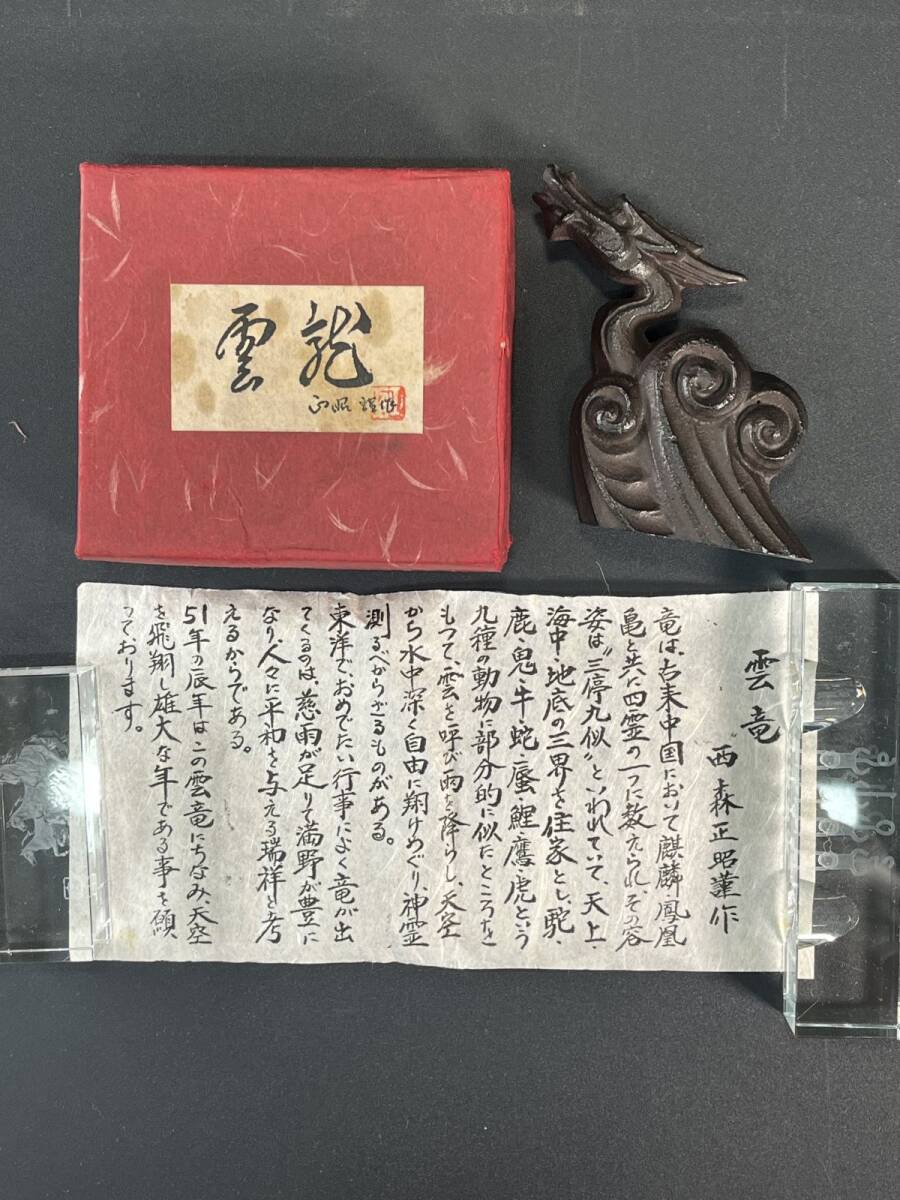 雲龍
正昭謹作
雲竜
西森正昭謹作
竜は、古来中国において麒麟鳳凰
亀と共に四霊の一つに数えられ、その容
姿は〝三停九似〟といわれていて、天上・
海中・地底の三界を住家とし、駝・
鹿・鬼・牛・蛇・蜃・鯉・鷹・虎という
九種の動物に部分的に似たところを
もつて、雲を呼び雨を降らし、天空
から水中深く自由に翔けめぐり、神霊
測るべからざるものがある。
東洋で、おめでたい行事によく竜が出
てくるのは、慈雨が足りて満野が豊に
なり、人々に平和を与える瑞祥と考
えるからである。
51年の辰年はこの雲竜にちなみ、天空
を飛翔し雄大な年である事を願
っております。